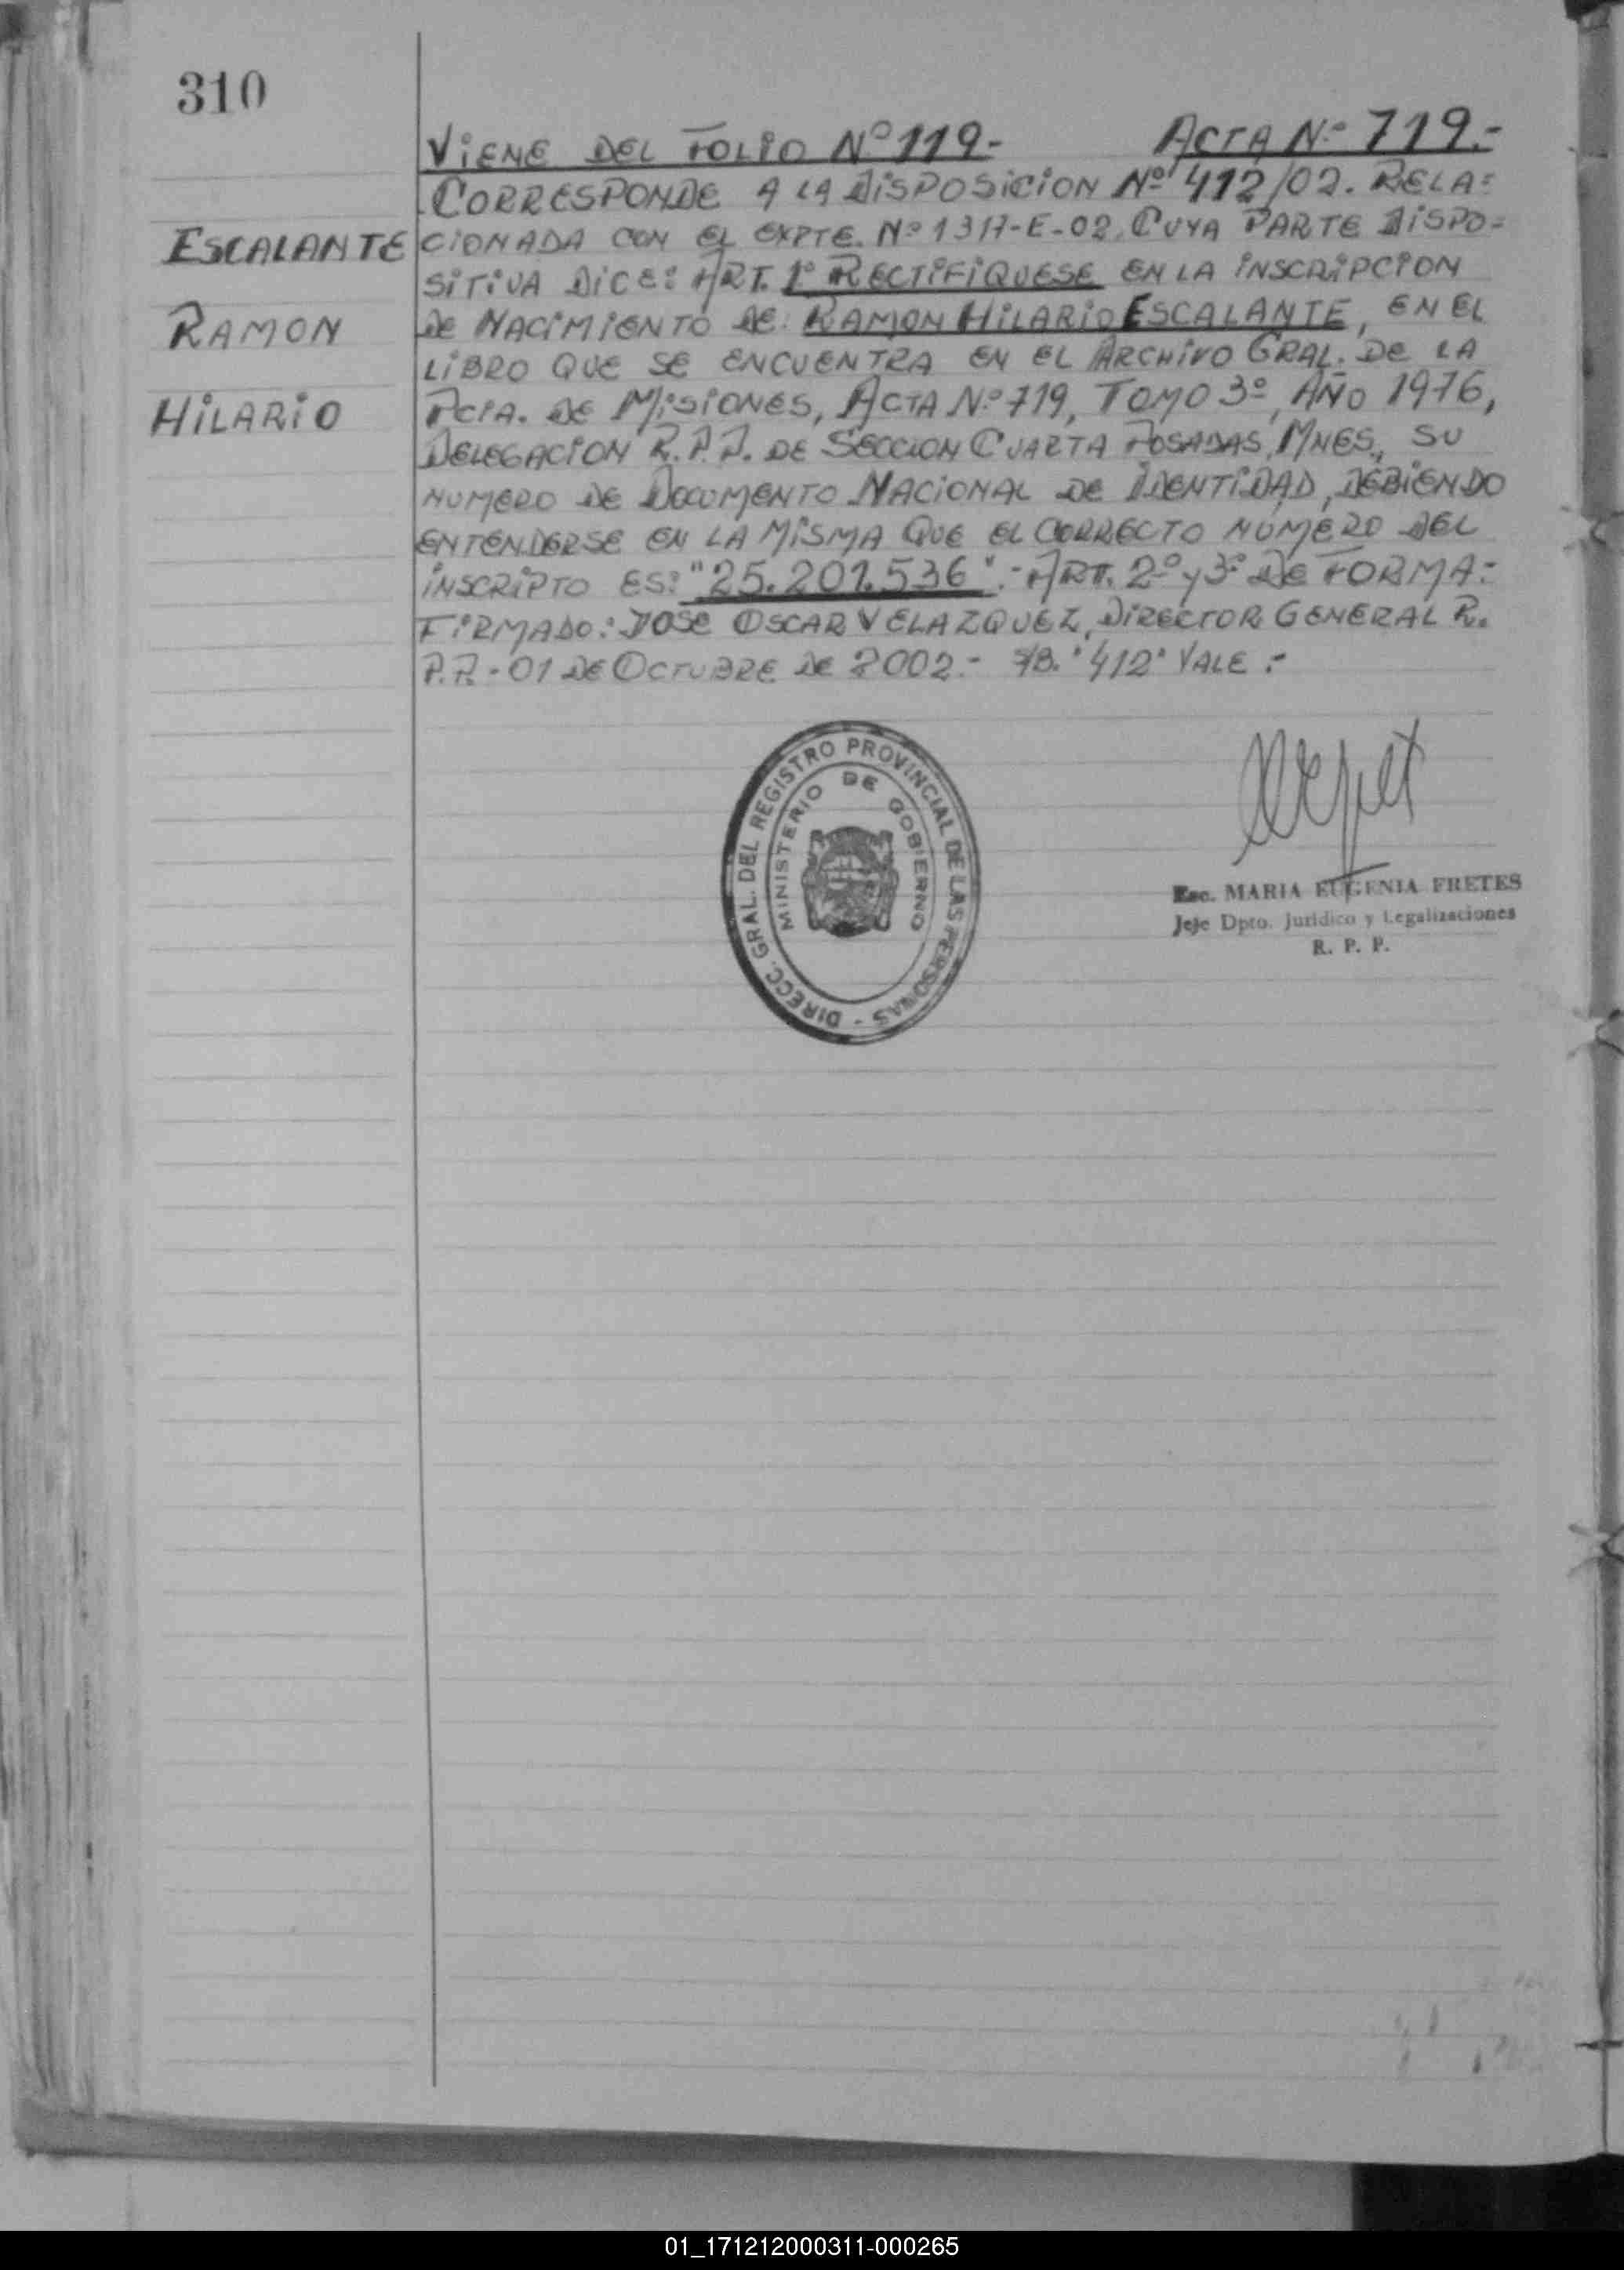 310
VIENE DEL FOLIO Nº 119.-
ACTA Nº 719.-
CORRESPONDE A LA DISPOSICION Nº 412/02. RELA=
ESCALANTE
CIONADA CON EL EXPTE. Nº 1317-E-02. CUYA PARTE DISPO=
SITIVA DICE: ART. 1º RECTIFIQUESE EN LA INSCRIPCION
RAMON
DE NACIMIENTO DE: RAMON HILARIO ESCALANTE, EN EL
LIBRO QUE SE ENCUENTRA EN EL ARCHIVO GRAL. DE LA
HILARIO
PCIA. DE MISIONES, ACTA Nº 719, TOMO 3º, AÑO 1976,
DELEGACION R.P.P. DE SECCION CUARTA POSADAS, MNES., SU
NUMERO DE DOCUMENTO NACIONAL DE IDENTIDAD, DEBIENDO
ENTENDERSE EN LA MISMA QUE EL CORRECTO NUMERO DEL
INSCRIPTO ES: "25.201.536".- ART. 2º y 3º DE FORMA:
FIRMADO: JOSE OSCAR VELAZQUEZ, DIRECTOR GENERAL R.
P.P.- 01 DE OCTUBRE DE 2002.- S/B. "412" VALE:-
DIRECC. GRAL. DEL REGISTRO PROVINCIAL DE LAS PERSONAS -
MINISTERIO DE GOBIERNO
Esc. MARIA EUGENIA FRETES
Jefe Dpto. Juridico y Legalizaciones
R. P. P.
01_171212000311-000265